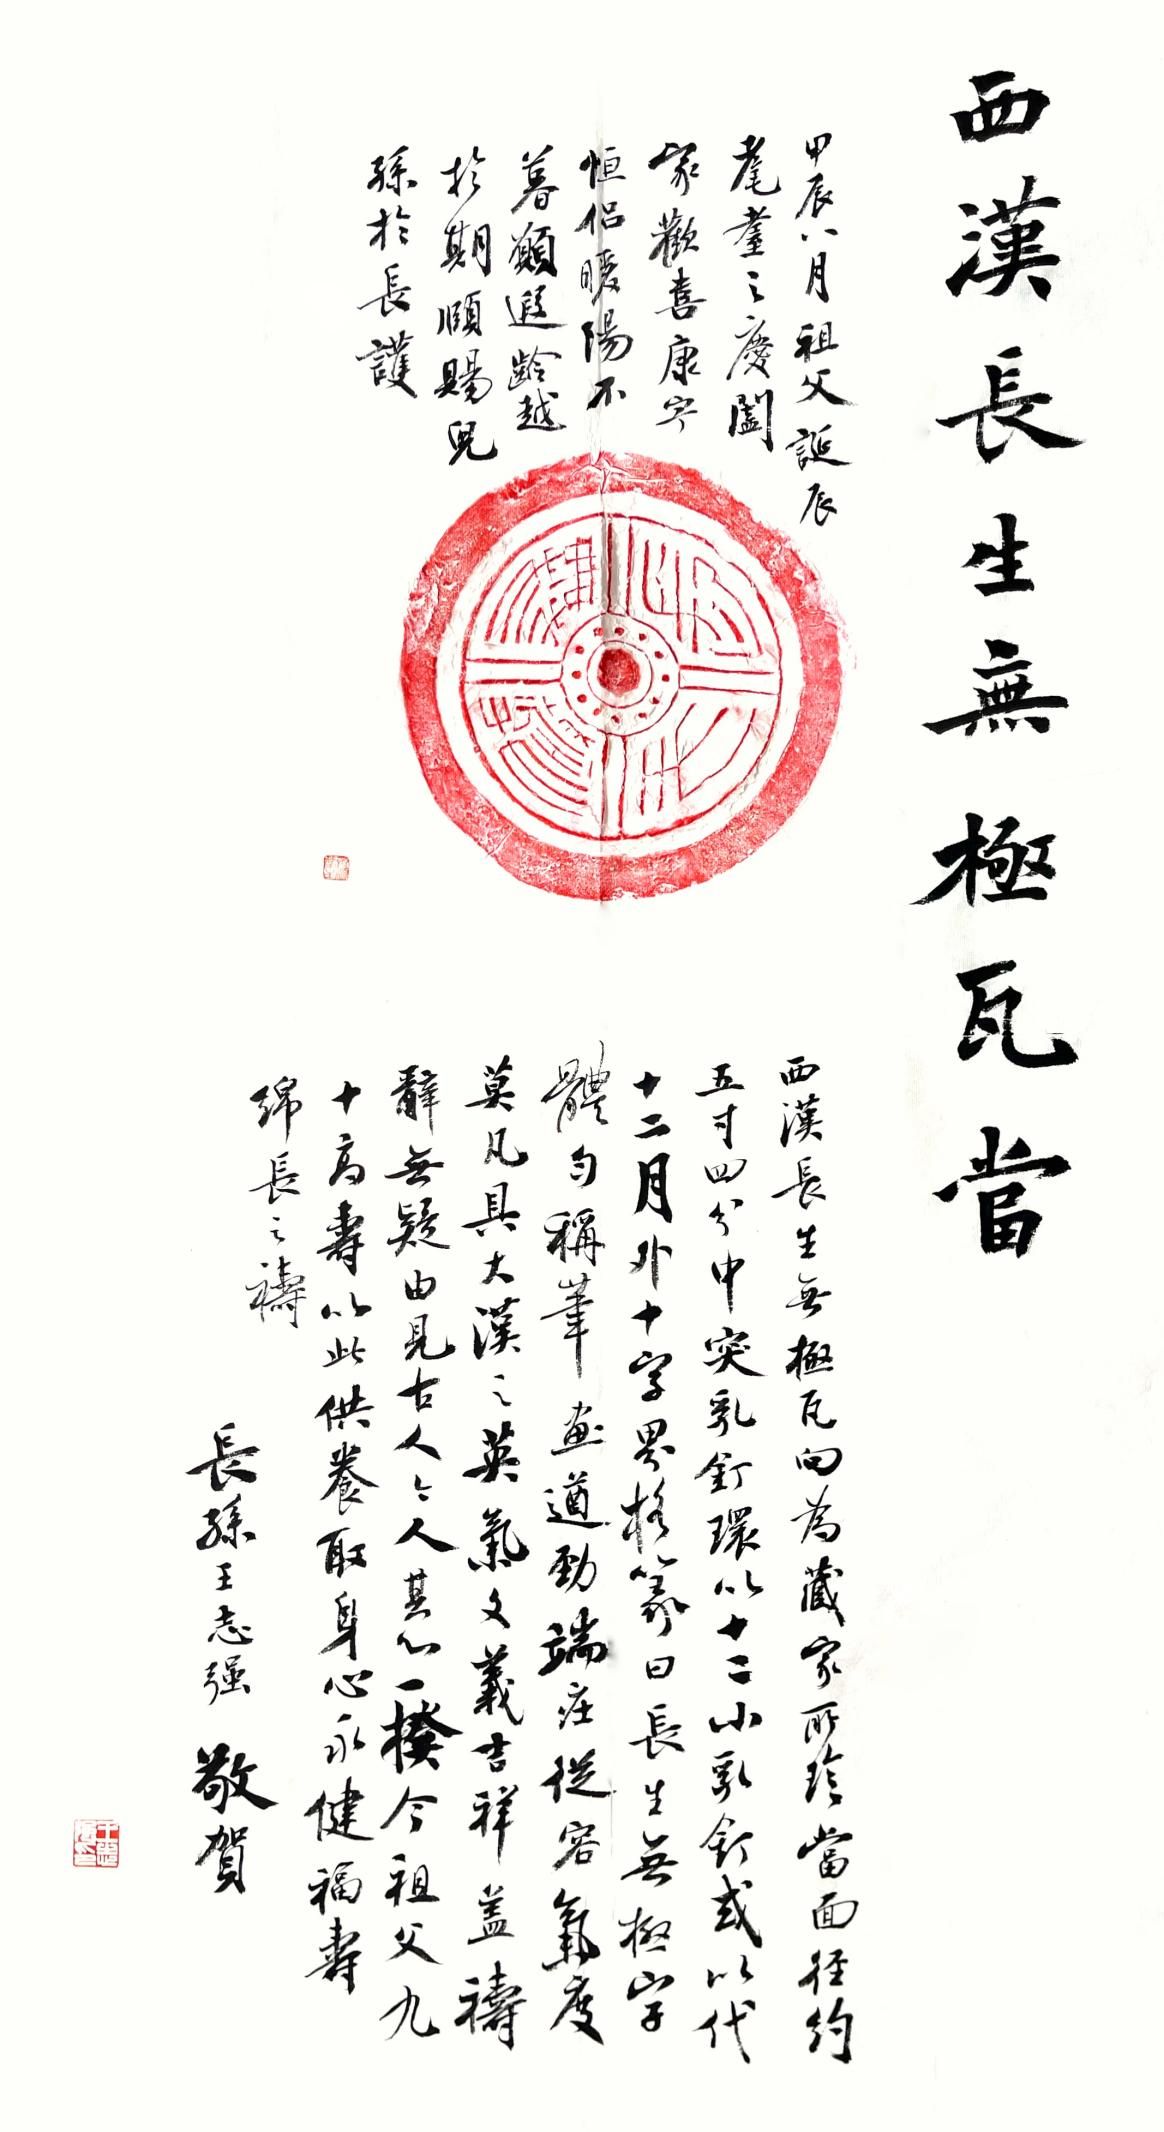 西漢長生無極瓦當
甲辰八月祖父誕辰
耄耋之慶闔
家歡喜康寧
恒侶暖陽不
暮願遐齡越
於期頤賜兒
孫於長護
長生無極
西漢長生無極瓦向為藏家所珍當面徑約
五寸四分中突乳釘環以十二小乳釘或以代
十二月外十字界格篆曰長生無極字
體勻稱筆畫遒勁端莊從容氣度
莫凡具大漢之英氣文義吉祥蓋禱
辭無疑由見古人今人其心一揆今祖父九
十高壽以此供養取身心永健福壽
綿長之禱
長孫王志强敬賀